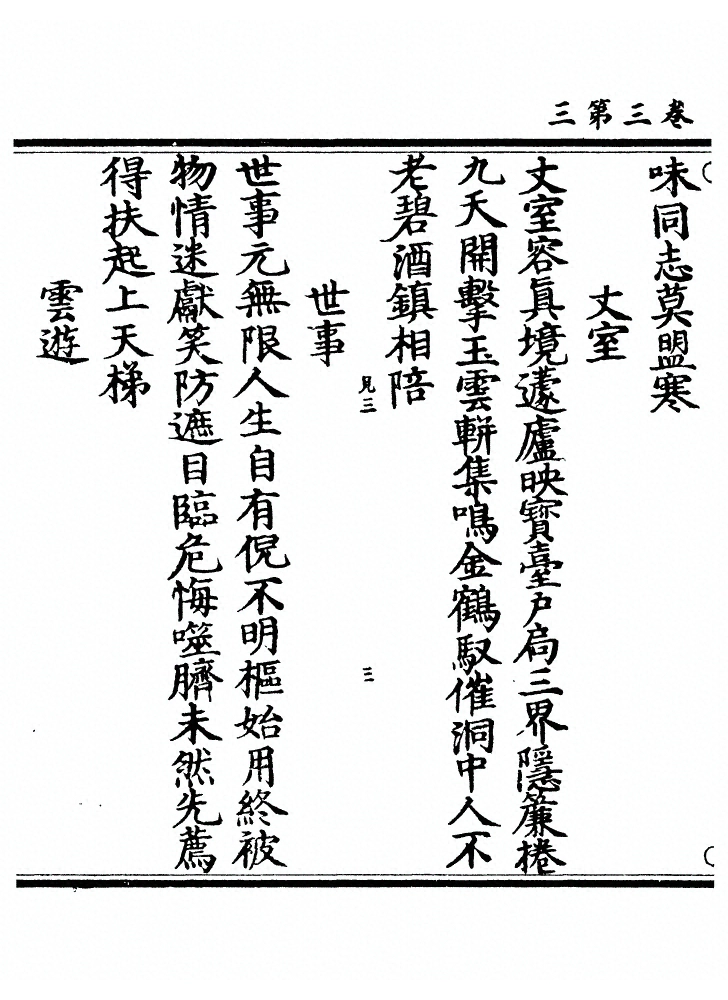 卷三第三
味同志莫盟寒
丈室
丈室容眞境蘧廬映寶臺戶扃三界隱簾捲
九天開擊玉雲軿集鳴金鶴馭催洞中人不
老碧酒鎮相陪
見三 三
世事
世事元無限人生自有倪不明樞始用終被
物情迷獻笑防遮目臨危悔噬臍未然先薦
得扶起上天梯
雲遊